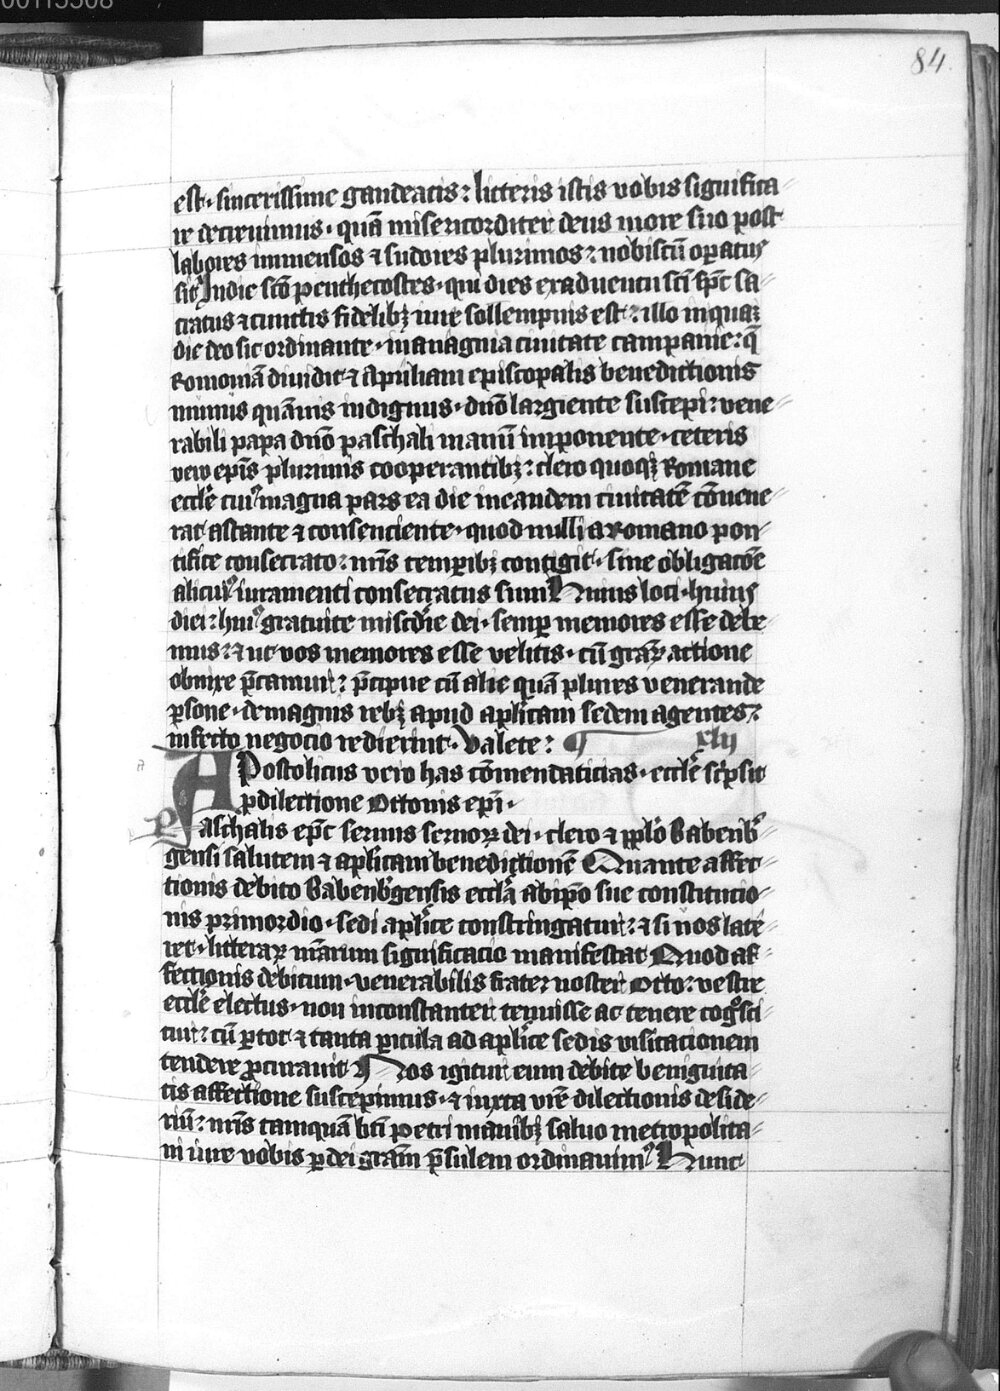 00115308
84
est · sincerissime gaudeatis : litteris istis vobis significa
re decreuimus · quā misericorditer deus more suo post
labores immensos ⁊ sudores plurimos : nobiscū oꝑatus
sit Indie scō penthecostes · qui dies exaduentu sci spc sa
cratus ⁊ cunctis fidelibꝫ iure sollempnis est : illo inquaꝫ
die deo sic ordinante · in anagnia ciuitate campanie : q̄
Romoniā diuidit ⁊ Apuliam episcopalis benedictionis
munus quāuis indignus · dn̄o largiente suscepi : vene
rabili papa dn̄o paschali manū imponente · ceteris
vero ep̄is plurimis cooperantibꝫ : clero quoqꝫ Romane
eccl̄e cuiꝰ magna pars ea die ineandem ciuitatē cōuene
rat astante ⁊ consenciente · quod nulli a Romano pon
tifice consecrato : nr̄is temꝑibꝫ contigit · sine obligacōe
alicuiꝰ iuramenti consecratus sum Huius loci · huius
diei : huiꝰ gratuite mis̄c̄die dei · semꝑ memores esse debe
mus : ⁊ ut vos memores esse velitis · cū graꝝ actione
obnixe p̄camur : p̄cipue cū alie quā plures venerande
ꝑsone · demagnis rebꝫ apud apl̄icam sedem agentes :
infecto negocio redierint · Valete : ¶ xlij
APostolicus vero has cōmendaticias · eccl̄e sc̄psit
ꝓdilectione Ottonis ep̄i ·
Paschalis ep̄c seruus seruoꝝ dei · clero ⁊ pp̄lo Babenb̄
gensi salutem ⁊ apl̄icam benedictionē Quante affec
tionis debito Babenb̄gensis eccl̄a abip̄o sue constitucio
nis primordio · sedi apl̄ice constringatur : ⁊ si nos late
ret · litteraꝝ vr̄arum significacio manifestat Quod af
fectionis debitum · venerabilis frater noster Otto : vestre
eccl̄e electus · non inconstanter tenuisse ac tenere cogͦsci
tur : cū ꝑtot ⁊ tanta ꝑicula ad apl̄ice sedis visitacionem
tendere ꝓcurauit Nos igitur eum debite benignita
tis affectione suscepimus · ⁊ iuxta vr̄e dilectionis deside
riū : nr̄is tamquā bt̄i Petri manibꝫ saluo metropolita
ni iure vobis ꝑ dei grām p̄sulem ordinauimꝰ Hunc